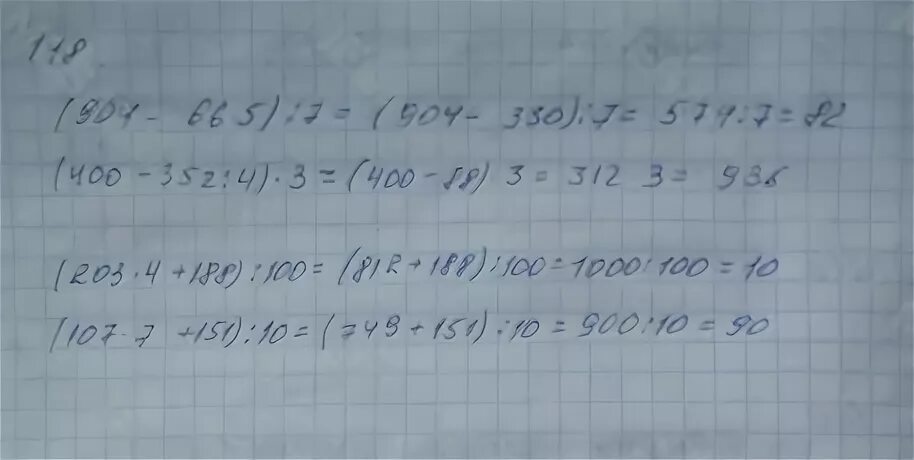 118
(904 - 66 5) : 7 = (904 - 330) : 7 = 574 : 7 = 82
(400 - 352 : 4) · 3 = (400 - 88) 3 = 312 3 = 936
(203 · 4 + 188) : 100 = (812 + 188) : 100 = 1000 : 100 = 10
(107 · 7 + 151) : 10 = (749 + 151) : 10 = 900 : 10 = 90